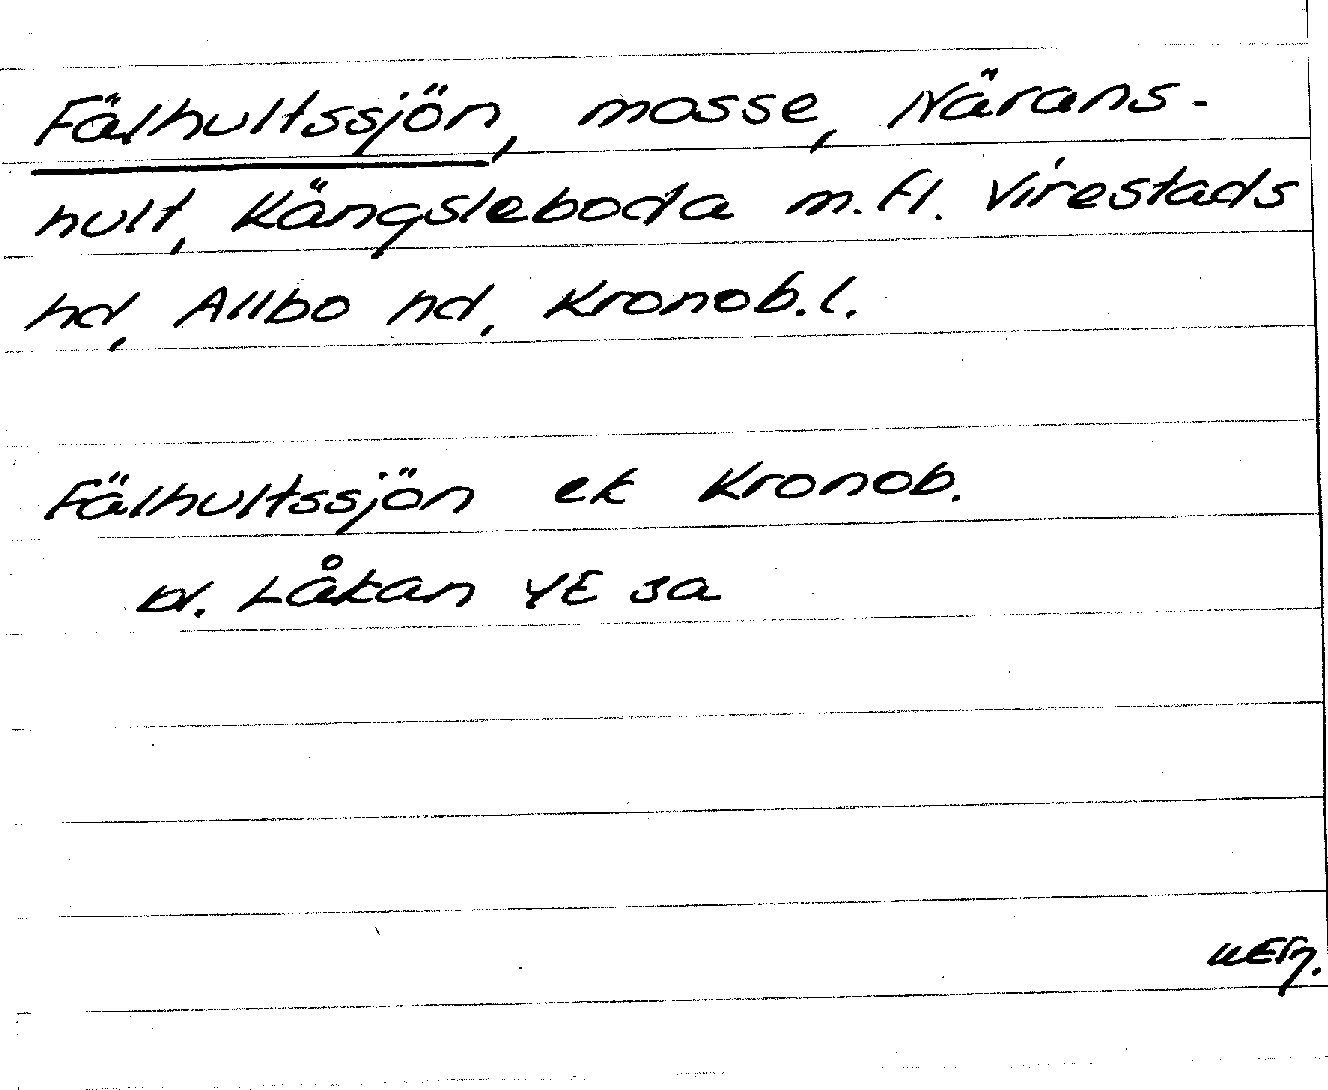 Fälhultssjön, mosse, Närans-
hult, Kängsleboda m.fl. Virestads
hd, Allbo hd, Kronob.l.
Fälhultssjön ek Kronob.
bl. Låkan 4E 3a